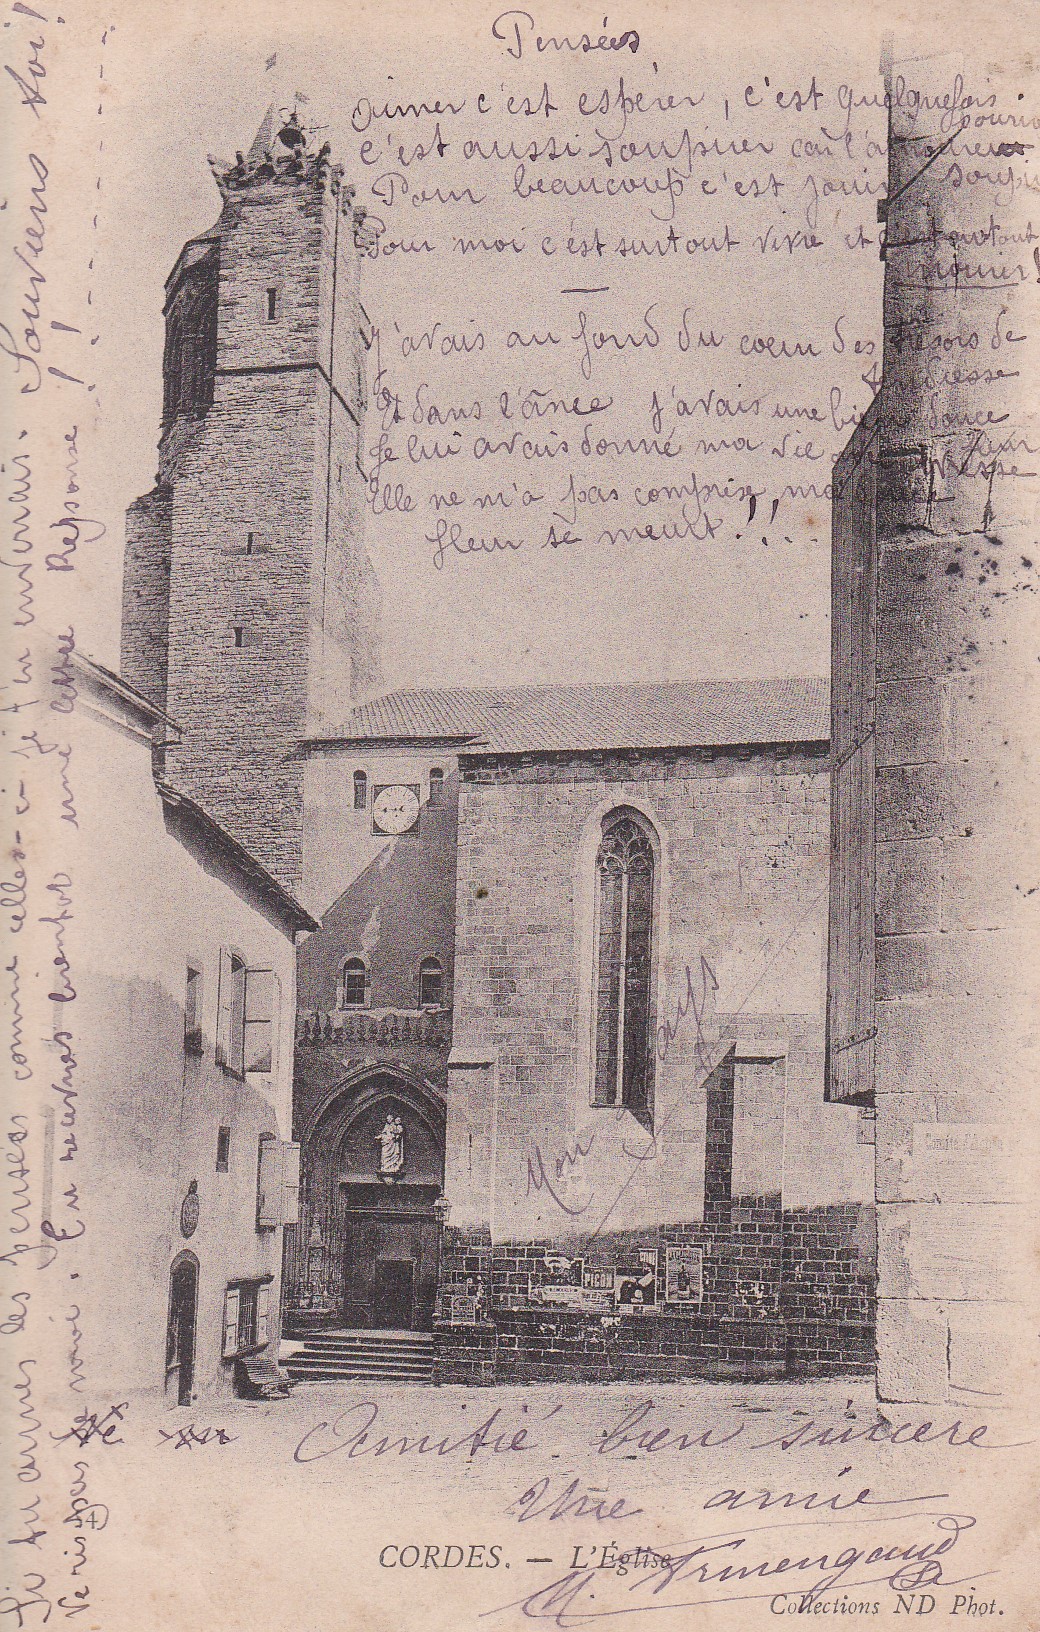 Pensées
aimer c'est espérer, c'est quelquefois
c'est aussi soupirer car l'amoureux
Pour beaucoup c'est jouir
Pour moi c'est surtout vivre et c'est surtout
mourir!
J'avais au fond du coeur des trésors de
tendresse
Et dans l'âme j'avais une bien douce
fleur
Je lui avais donné ma vie
Elle ne m'a pas comprise, ma
fleur se meurt!!...
Si tu aimes les pensées comme celles-ci je t'en enverrais. Souviens toi!
Ne ris pas de moi. En recevras bientot une lettre Reponse!
Mon Pays
PICON
Amitié bien sincère
Une amie
M. Armengaud
4
CORDES. — L'Église
Collections ND Phot.